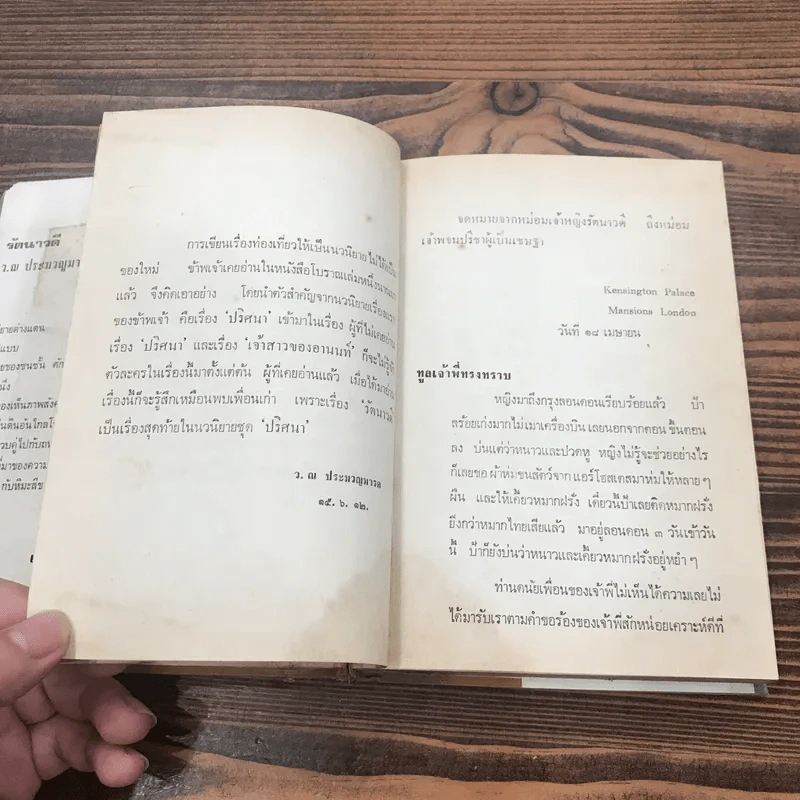 รัตนาวดี
ว.ณ ประมวญมาร
ยายต่างแดน
แบบ
ของชนชั้น
นึ่ง
องเห็นภาพสัง
นดินอันไกลโ
วบคู่ไปกับกา
ที่มาของความ
กับหิมะสีข
การเขียนเรื่องท่องเที่ยวให้เป็นนวนิยาย ไม่ได้เป็น
ของใหม่ ข้าพเจ้าเคยอ่านในหนังสือโบราณเล่มหนึ่งนานมา
แล้ว จึงคิดเอาอย่าง โดยนำตัวสำคัญจากนวนิยายเรื่องแรก
ของข้าพเจ้า คือเรื่อง 'ปริศนา' เข้ามาในเรื่อง ผู้ที่ไม่เคยอ่าน
เรื่อง 'ปริศนา' และเรื่อง 'เจ้าสาวของอานนท์' ก็จะไม่รู้จัก
ตัวละครในเรื่องนี้มาตั้งแต่ต้น ผู้ที่เคยอ่านแล้ว เมื่อได้มาอ่าน
เรื่องนี้ก็จะรู้สึกเหมือนพบเพื่อนเก่า เพราะเรื่อง 'รัตนาวดี'
เป็นเรื่องสุดท้ายในนวนิยายชุด 'ปริศนา'
ว. ณ ประมวญมารค
๑๕. ๖. ๑๒.
จดหมายจากหม่อมเจ้าหญิงรัตนาวดี ถึงหม่อม
เจ้าพจนปรีชาผู้เป็นเชษฐา
Kensington Palace
Mansions London
วันที่ ๑๘ เมษายน
ทูลเจ้าพี่ทรงทราบ
หญิงมาถึงกรุงลอนดอนเรียบร้อยแล้ว ป้า
สร้อยเก่งมากไม่เมาเครื่องบิน เลยนอกจากตอน ขึ้นตอน
ลง บ่นแต่ว่าหนาวและปวดหู หญิงไม่รู้จะช่วยอย่างไร
ก็เลยขอ ผ้าห่มขนสัตว์จาก แอร์โฮสเตสมาห่มให้หลาย ๆ
ผืน และให้เคี้ยวหมากฝรั่ง เดี๋ยวนี้ป้าเลยติดหมากฝรั่ง
ยิ่งกว่าหมากไทยเสียแล้ว มาอยู่ลอนดอน ๓ วันเข้าวัน
นี้ ป้าก็ยังบ่นว่าหนาวและเคี้ยวหมากฝรั่งอยู่หยำ ๆ
ท่านดนัยเพื่อนของเจ้าพี่ไม่เห็นได้ความเลยไม่
ได้มารับเราตามคำขอร้องของเจ้าพี่สักหน่อยเคราะห์ดีที่